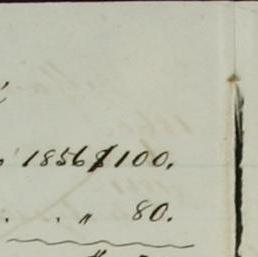 1856 $100.
. . " 80.